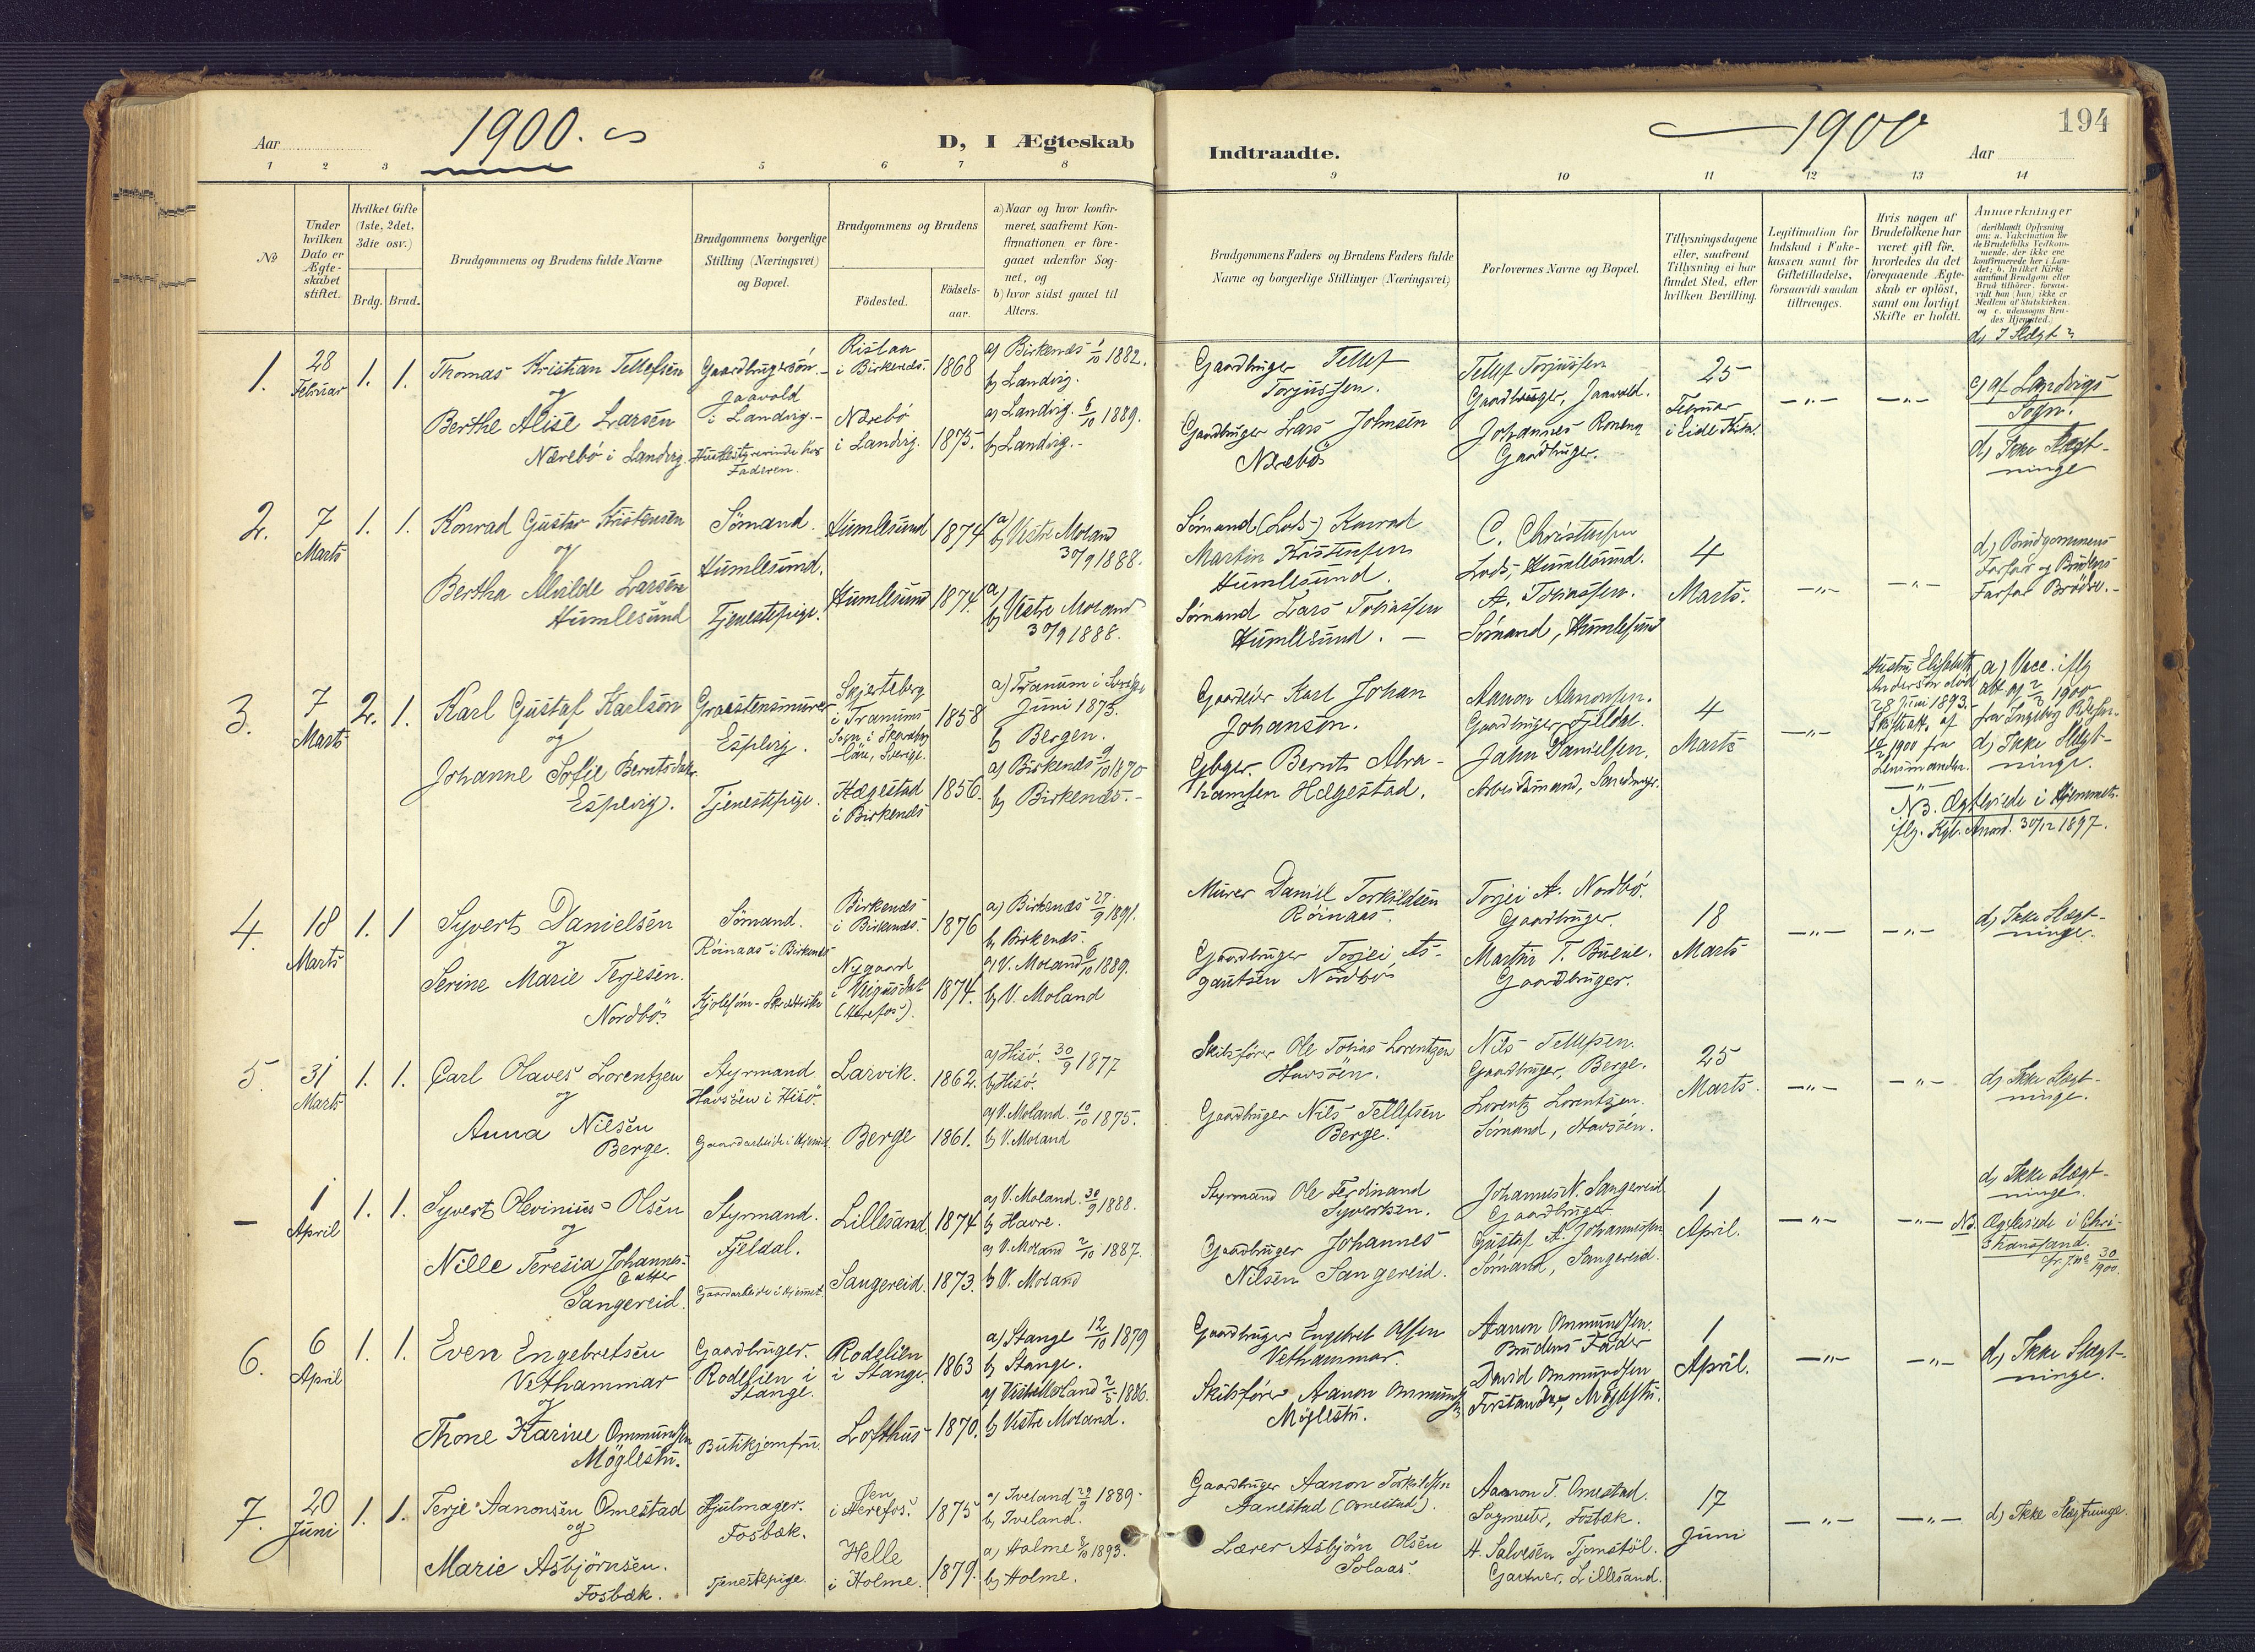 194
Aar 1900.
D, I Ægteskab
Indtraadte.
1900
Aar
1 2 3 5 6 7 8 9 10 11 12 13 14
No
Under hvilken Dato er Ægteskabet stiftet.
Hvilket Gifte (1ste, 2det, 3die osv.)
Brdg. Brud.
Brudgommens og Brudens fulde Navne
Brudgommens borgerlige Stilling (Næringsvei) og Bopæl.
Brudgommens og Brudens
Födested.
Födsels-aar.
a) Naar og hvor konfir-
meret, saafremt Kon-
firmationen er fore-
gaaet udenfor Sog-
net, og
b) hvor sidst gaaet til
Alters.
Brudgommens Faders og Brudens Faders fulde
Navne og borgerlige Stillinger (Næringsvei)
Forlovernes Navne og Bopæl.
Tillysningsdagene
eller, saafremt
Tillysning ei har
fundet Sted, efter
hvilken Bevilling.
Legitimation for
Indskud i Enke-
kassen samt for
Giftetilladelse,
forsaavidt saadan
tiltrænges.
Hvis nogen af
Brudefolkene har
været gift för,
hvorledes da det
foregaaende Ægte-
skab er oplöst,
samt om lovligt
Skifte er holdt.
Anmærkninger
d) I Slægt?
1.
28 Februar
1. 1.
Thomas Kristian Tellefsen
og
Berthe Alise Larsen
Nærebö i Landvig.
Gaardbrugersön.
Jaavold
i Landvig.
Faderen.
Ristaa
i Birkenes. 1868
Nærebö
i Landvig. 1875.
a) Birkenes 1/10 1882.
b) Landvig.
a) Landvig. 6/10 1889.
b) Landvig.
Gaardbruger Tellef
Torjussen.
Gaardbruger Lars Johnsen
Nærebö
Tellef Torjussen
Gaardbruger, Jaavold.
Johannes
Gaardbruger.
25
Februar
i Eide Kirke.
c) af Landvigs
Sogn.
d) Ikke Slægt-
ninge
2.
7 Marts
1. 1.
Konrad Gustav Kristensen
og
Bertha Alvilde Larsen
Humlesund
Sömand.
Humlesund.
Tjenestepige.
Humlesund 1874
Humlesund 1874.
a)
b) Vestre Moland
30/9 1888.
a)
b) Vestre Moland
30/9 1888.
Sömand (Lods) Konrad
Martin Kristensen
Humlesund.
Sömand Lars Tobiassen
Humlesund.
C. Christensen
Lods, Humlesund.
A. Tobiassen.
Sömand, Humlesund
4
Marts.
d) Brudgommens
Farfar og Brudens
Farfar Brödre.
3.
7 Marts
2. 1.
Karl Gustaf Karlsön
og
Johanne Sofie Berntsdatter
Espevig.
Graastensmurer
Espevig.
Tjenestepige.
Skjerteberg
i Tranums
Sogn i Skaraborg
län, Sverige. 1858
Hægestad
i Birkenes 1856.
a) Tranum i Sverige
Juni 1873.
b) Bergen.
a) Birkenes 9/10 1870
b) Birkenes.
Gaardeier Karl Johan
Johansön.
Gbger. Bernt Abra-
hamsen Hægestad.
Aanon Aanonsen.
Gaardbruger, Fjeldal.
Jahn Danielsen.
4
Marts
Hustru Elisabeth
Anderson död
28 Juni 1893.
Skifteatt. af
1900 fra
Lensmanden.
a) Vacc. iflg
att. af 2/3 1900
d) Ikke Slægt-
ninge.
NB. Ægteviede i Hjemmet
iflg. Kgl. Anord. 30/12 1897.
4.
18 Marts
1. 1
Syvert Danielsen
og
Serine Marie Terjesen.
Nordbö.
Sömand.
Röinaas i Birkenes
Birkenes
i Birkenes. 1876
Nygaard
i Veigusdal
(Herefos). 1874.
a) Birkenes 27/9 1891.
b) Birkenes.
a) V. Moland 6/10 1889.
b) V. Moland
Murer Daniel Torkildsen
Röinaas.
Gaardbruger Torjei As-
gautsen Nordbö
Torjei A. Nordbö.
Gaardbruger.
Martin T. Bueie.
Gaardbruger.
18
Marts
d) Ikke Slægt-
ninge.
5.
31 Marts
1. 1.
Carl Olaves Lorentzen
og
Anna Nilsen
Berge.
Styrmand
Havsöen i Hisö.
Gaardarbeide i Hjemmet
Larvik. 1862.
Berge 1861.
a) Hisö. 30/9 1877
b) Hisö.
a) V. Moland. 10/10 1875.
b) V. Moland
Skibsförer Ole Tobias Lorentzen
Havsöen.
Gaardbruger Nils Tellefsen
Berge.
Nils Tellefsen.
Gaardbruger, Berge.
Lorentz Lorentzen.
Sömand, Havsöen.
25
Marts.
d) Ikke Slægt-
ninge.
–
1 April
1. 1.
Syvert Olevinius Olsen
og
Nille Teresia Johannes-
datter
Sangereid.
Styrmand.
Fjeldal.
Gaardarbeide i Hjemmet.
Lillesand 1874
Sangereid. 1873.
a) V. Moland. 30/9 1888.
b) Havre.
a) V. Moland 2/10 1887.
b) V. Moland
Styrmand Ole Ferdinand
Syvertsen.
Gaardbruger Johannes
Nilsen Sangereid.
Johannes N. Sangereid
Gaardbruger
Gustaf A. Johannessen
Sömand, Sangereid.
1
April.
d) Ikke Slægt-
ninge.
NB. Ægteviede i Chri-
stianssand.
6.
6 April
1. 1.
Even Engebretsen
Vethammar
og
Thone Karine Ommundsen
Möglestu.
Gaardbruger.
Rodelien i
Stange.
Butikjomfru.
Rodelien
i Stange. 1863
Lofthus 1870.
a) Stange 12/10 1879
b) Stange.
a) Vestre Moland 2/5 1886.
b) Vestre Moland.
Gaardbruger Engebret Olsen
Vethammar.
Skibsförer Aanon Ommundsen
Möglestu.
Aanon Ommundsen.
Brudens Fader
David Ommundsen
Forstander, Möglestu.
1
April.
d) Ikke Slægt-
ninge.
7.
20 Juni
1. 1.
Terje Aanonsen Omestad
og
Marie Asbjörnsen.
Fosbæk.
Hjulmager.
Fosbæk.
Tjenestepige.
i Herefos. 1875
Helle
i Holme. 1879.
a) Iveland 29/9 1889.
b) Iveland.
a) Holme 8/10 1893.
b) Holme.
Gaardbruger Aanon Torkildsen
Aanestad (Omestad).
Lærer Asbjörn Olsen
Solaas.
Aanon T. Omestad.
Sagmester, Fosbæk.
H. Salvesen Tjomstöl.
Gartner, Lillesand.
17
Juni
d) Ikke Slægtninge.